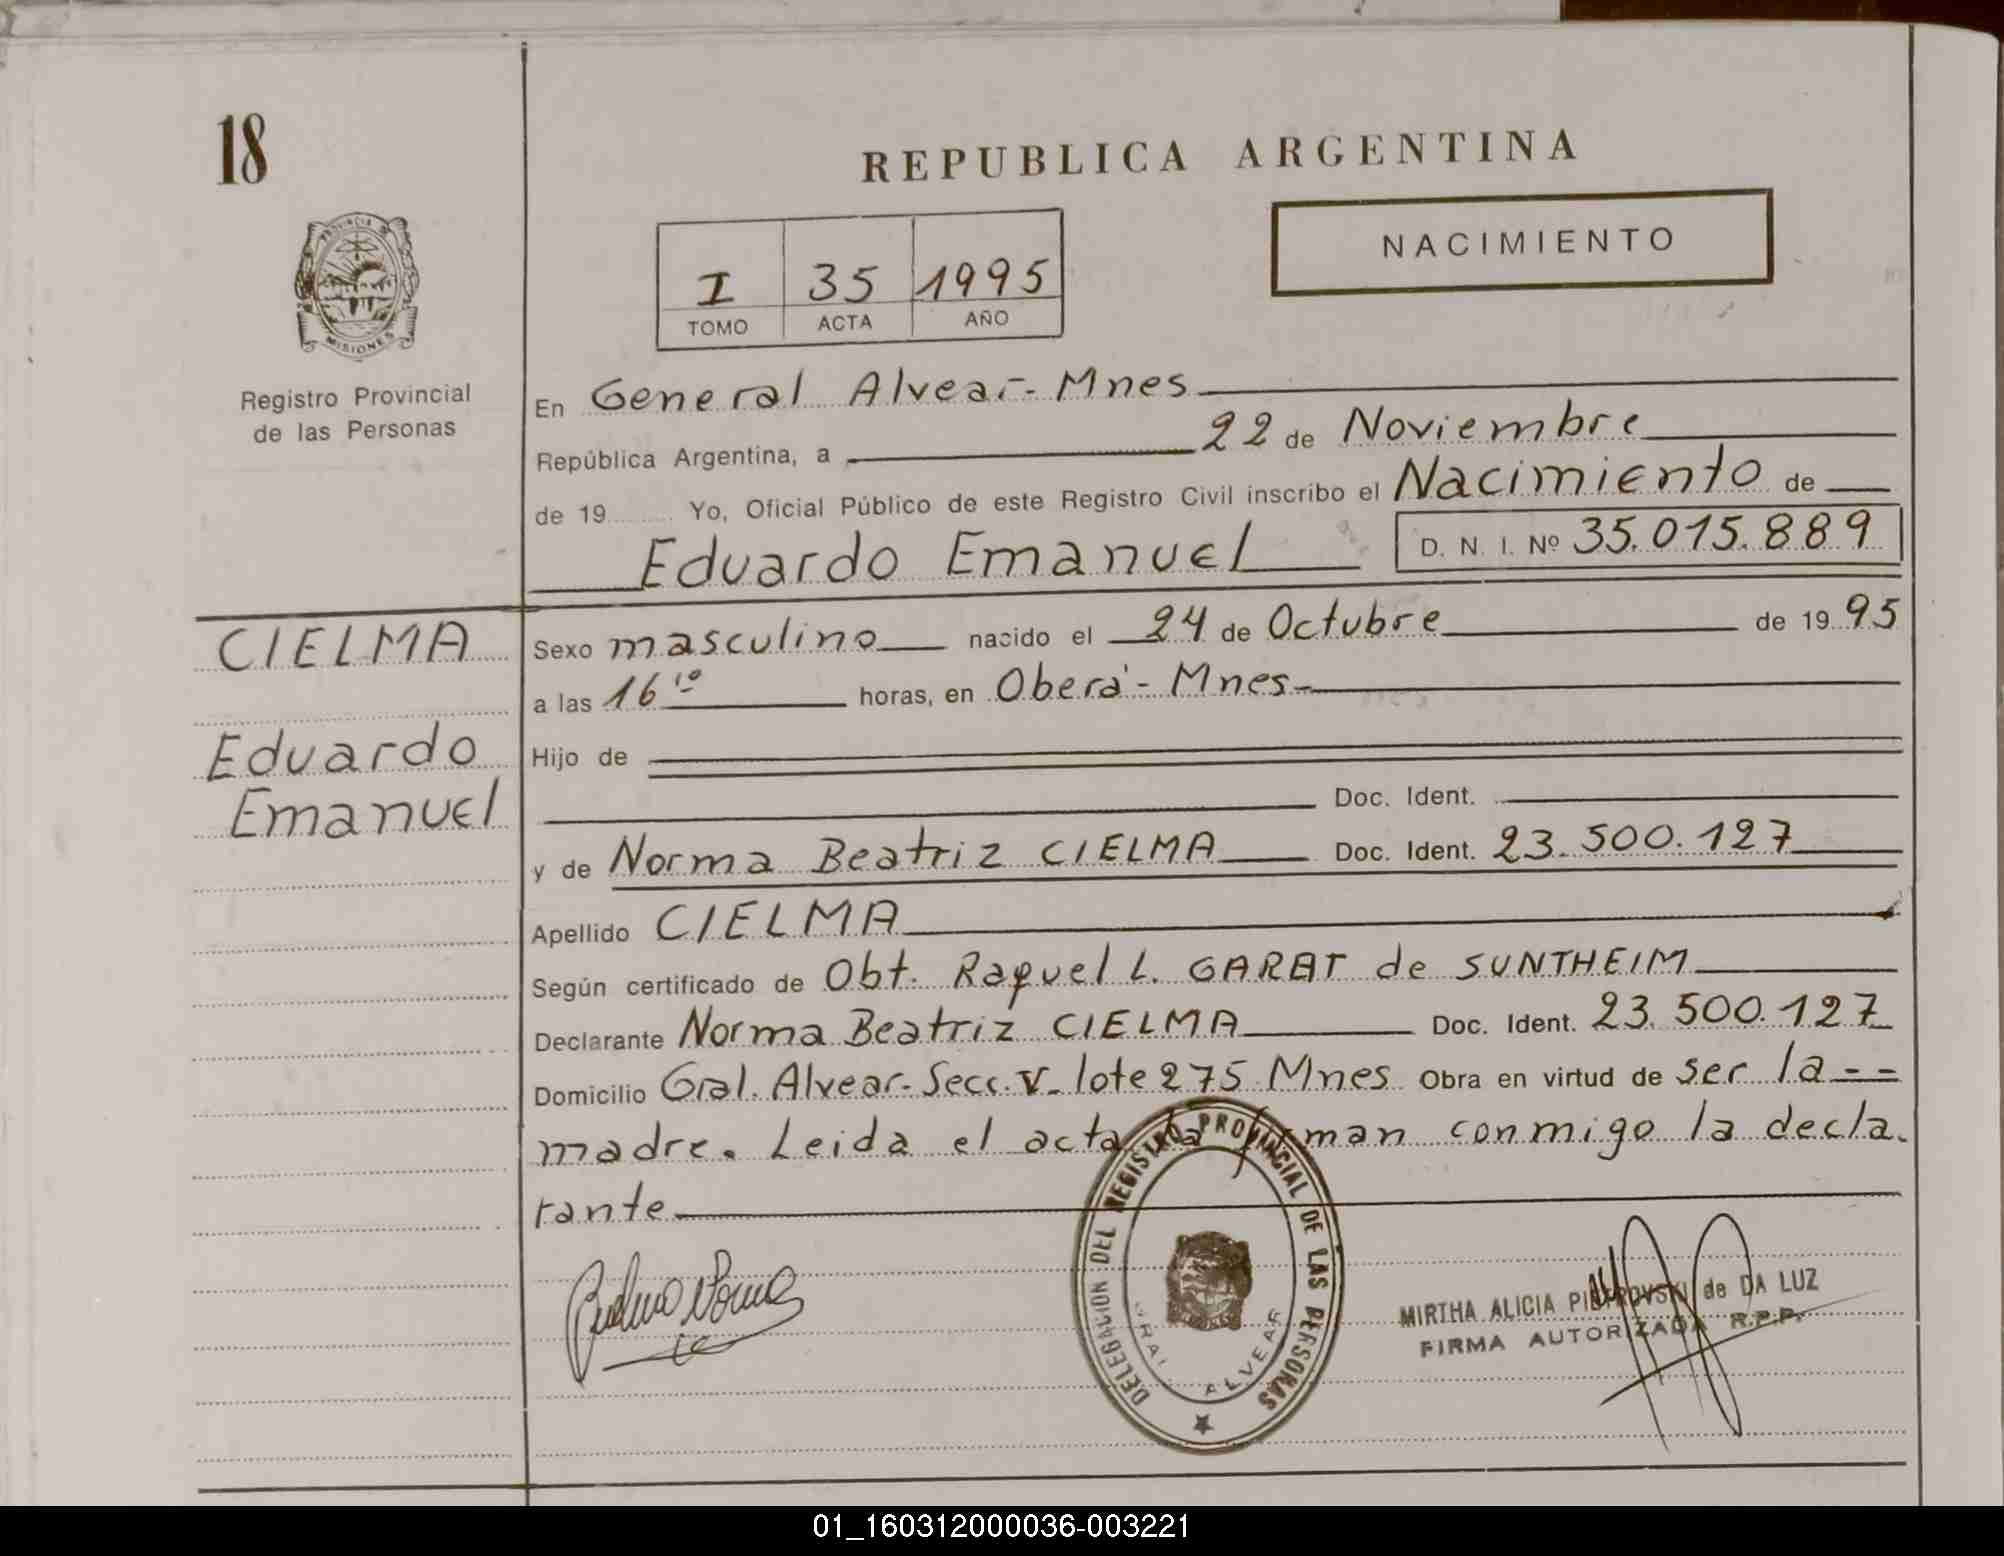 18
REPUBLICA ARGENTINA
NACIMIENTO
I 35 1995
TOMO ACTA AÑO
PROVINCIA DE
MISIONES
Registro Provincial
de las Personas
En General Alvear - Mnes
República Argentina, a 22 de Noviembre
de 19 Yo, Oficial Público de este Registro Civil inscribo el Nacimiento de
Eduardo Emanuel D. N. I. Nº 35.015.889
CIELMA
Eduardo
Emanuel
Sexo masculino nacido el 24 de Octubre de 1995
a las 16 10 horas, en Oberá - Mnes-
Hijo de
Doc. Ident.
y de Norma Beatriz CIELMA Doc. Ident. 23.500.127
Apellido CIELMA
Según certificado de Obt. Raquel L. GARAT de SUNTHEIM
Declarante Norma Beatriz CIELMA Doc. Ident. 23.500.127
Domicilio Gral. Alvear - Secc. V - lote 275 Mnes Obra en virtud de ser la - -
madre. Leida el acta la firman conmigo la decla.
rante
DELEGACION DEL REGISTRO PROVINCIAL DE LAS PERSONAS
GRAL ALVEAR
MIRTHA ALICIA PIETROVSKI de DA LUZ
FIRMA AUTORIZADA R.P.P.
01_160312000036-003221